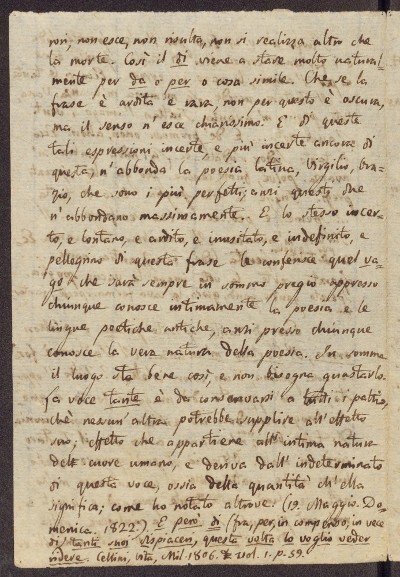 rori, non esce, non risulta, non si realizza altro che
la morte. Così il di viene a stare molto natural-
mente per da o per o cosa simile. Che se la
frase è ardita e rara, non per questo è oscura,
ma il senso n'esce chiarissimo. E di queste
tali espressioni incerte, e più incerte ancora di
questa, n'abbonda la poesia latina, Virgilio, Ora-
zio, che sono i più perfetti; anzi questi due
n'abbondano massimamente. E lo stesso incer-
to, e lontano, e ardito, e inusitato, e indefinito, e
pellegrino di questa frase le conferisce quel va-
go che sarà sempre in sommo pregio appresso
chiunque conosce intimamente la poesia e le
lingue poetiche antiche, anzi presso chiunque
conosce la vera natura della poesia. In somma
il luogo sta bene così, e non bisogna guastarlo.
La voce tante è da conservarsi a tutti i patti,
che nessun'altra potrebbe supplire all'effetto
suo; effetto che appartiene all'intima natura
del cuore umano, e deriva dall'indeterminato
di questa voce, ossia della quantità ch'ella
significa; come ho notato altrove. (19. Maggio. Do-
menica. 1822.). E però di (fra, per, in compenso, in vece
di) tanti suoi dispiaceri, questa volta lo voglio veder
ridere. Cellini, vita, Mil. 1806. vol. 1. p. 59.